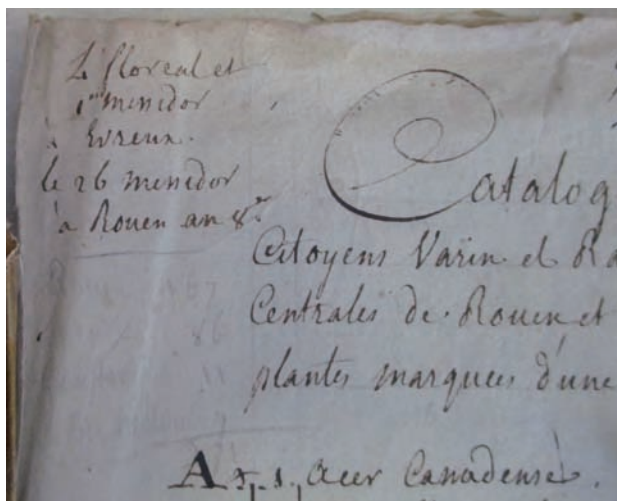 floreal et
1er messidor
à Evreux.
le 26 messidor
à Rouen an 8.e
Catalog
Citoyens Varin et R
Centrales de Rouen et
plantes marquees d'une
A 5. s. acer Canadense.